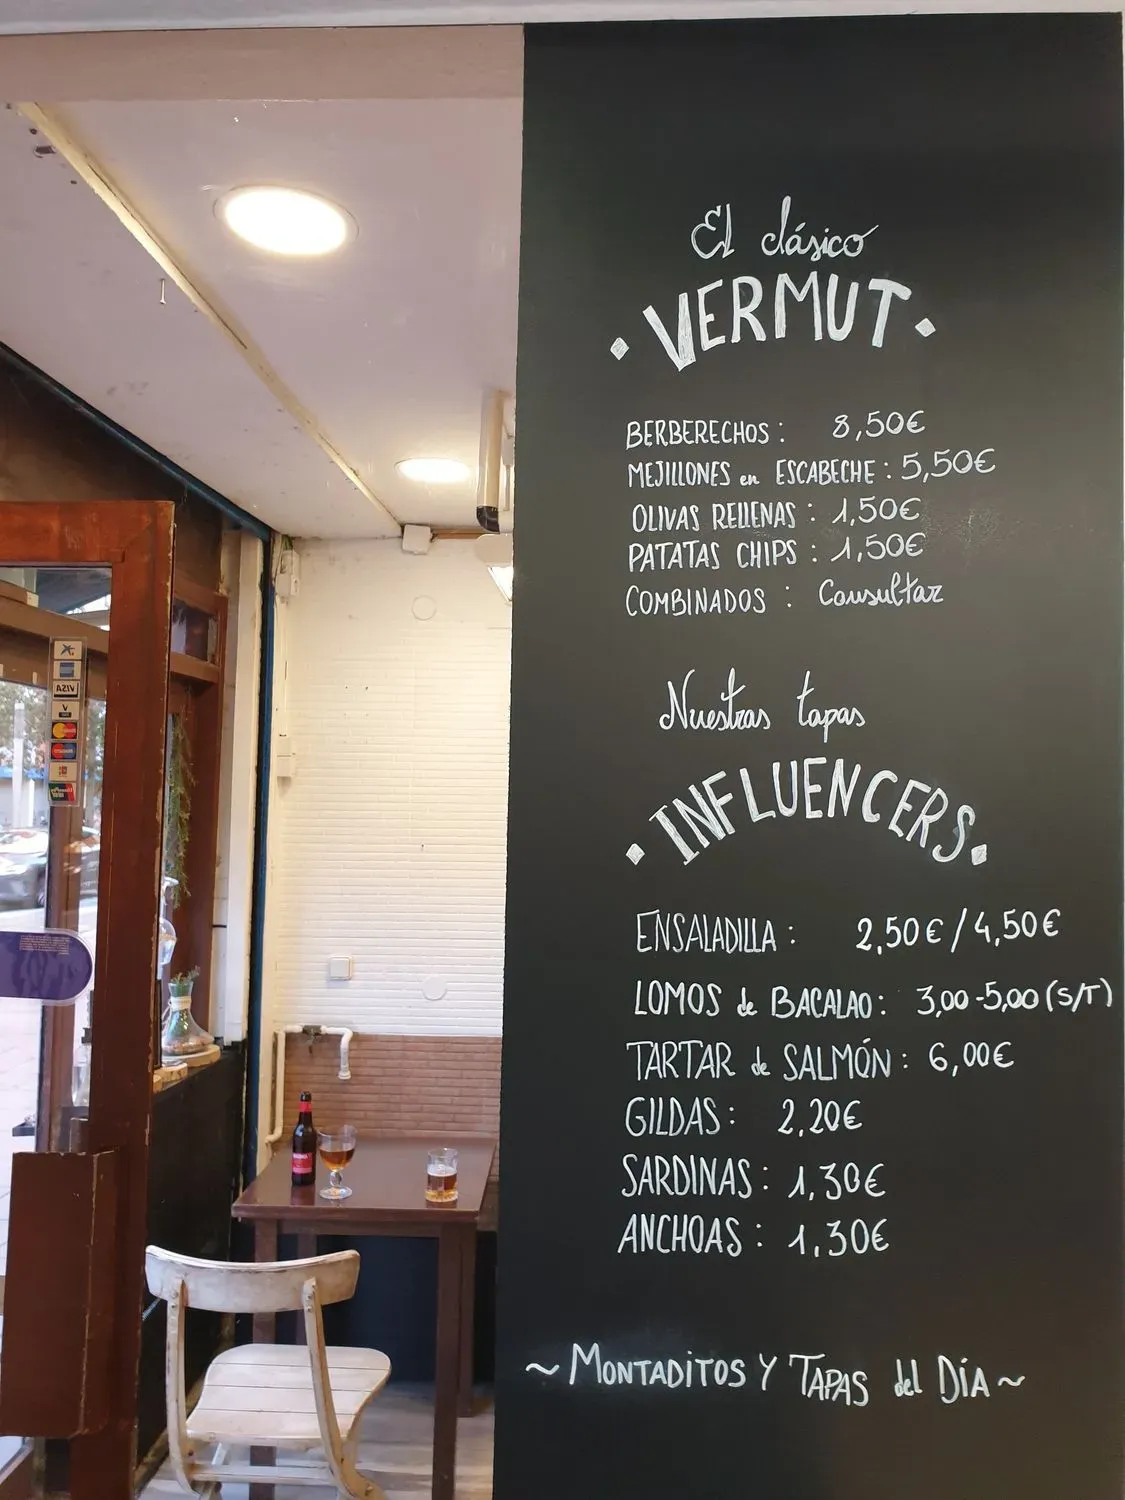 El clásico
VERMUT
BERBERECHOS: 8,50€
MEJILLONES en ESCABECHE: 5,50€
OLIVAS RELLENAS: 1,50€
PATATAS CHIPS: 1,50€
COMBINADOS: Consultar
Nuestras tapas
INFLUENCERS
ENSALADILLA: 2,50€/4,50€
LOMOS de BACALAO: 3,00-5,00 (S/T)
TARTAR de SALMÓN: 6,00€
GILDAS: 2,20€
SARDINAS: 1,30€
ANCHOAS: 1,30€
~ MONTADITOS Y TAPAS del DÍA ~